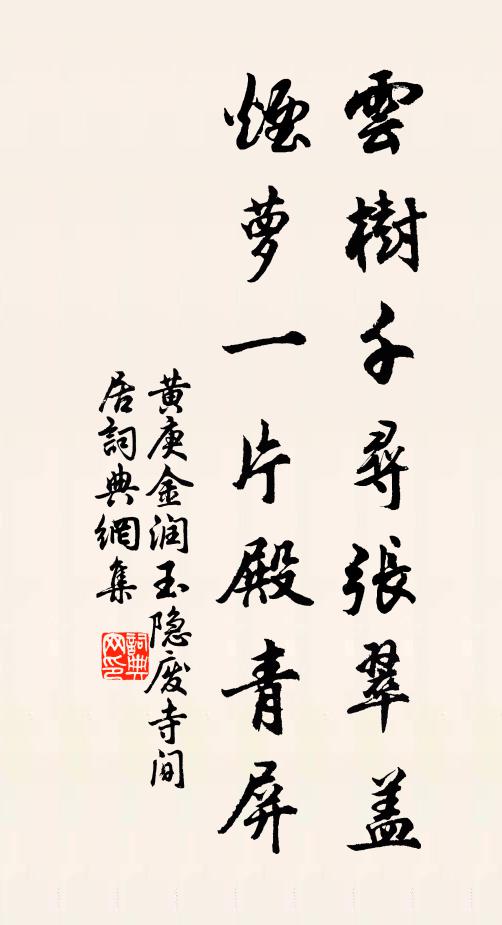 雲樹千尋張翠蓋
煙萝一片殿青屏
黄庚金润玉隐废寺间
居詞典網集
詞典